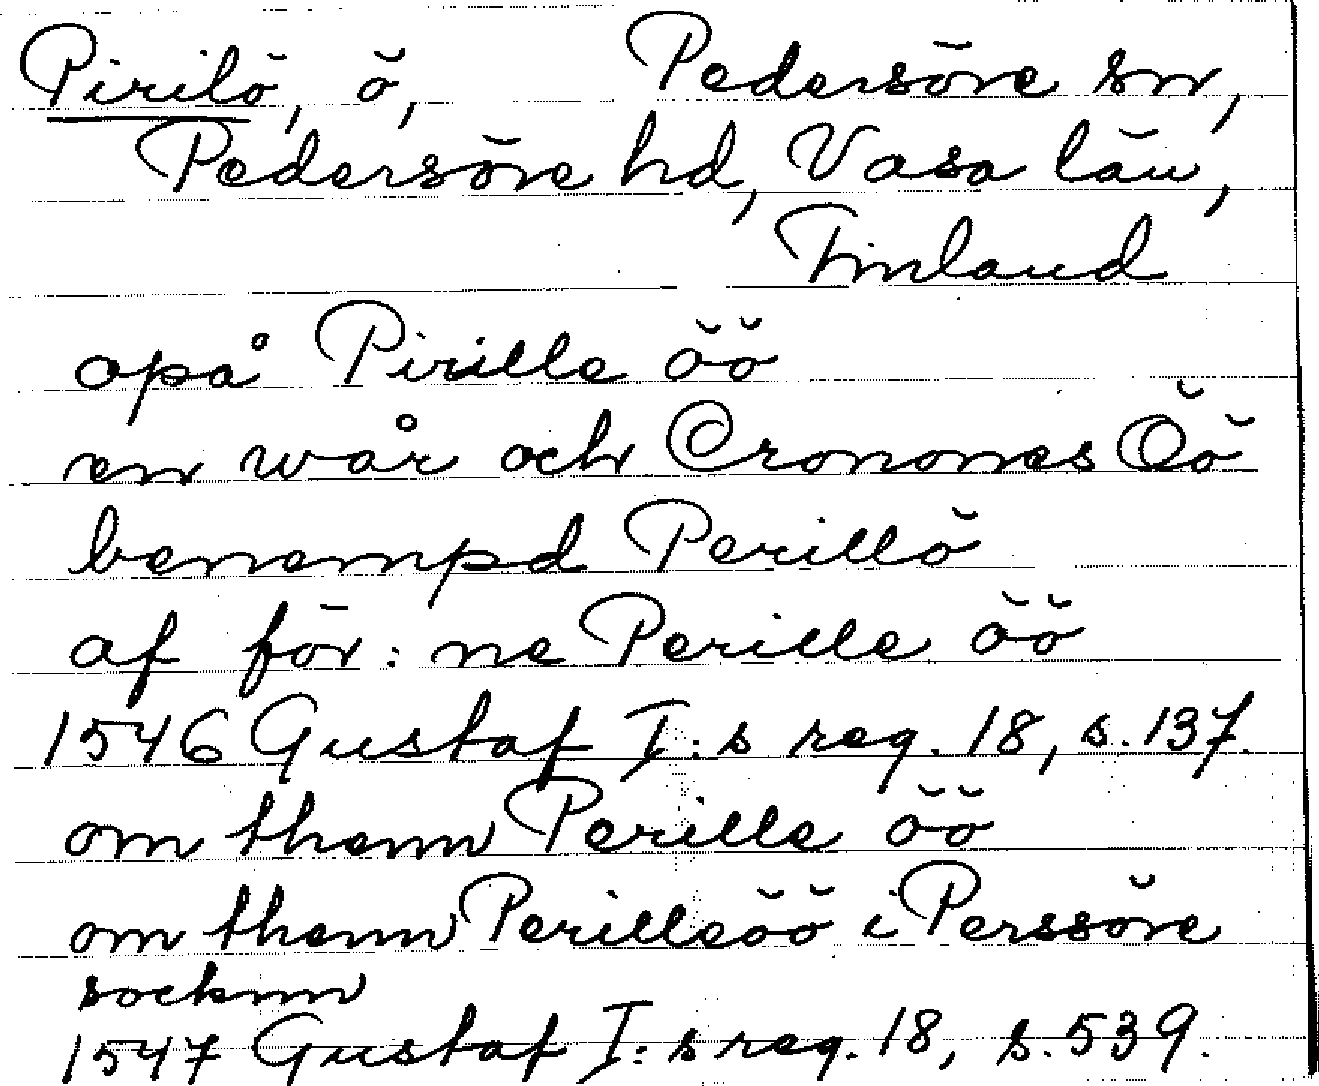 Pirilö, ö, Pedersöre sn,
Pedersöre hd, Vasa län,
Finland
opå Pirille öö
en wår och Cronones Öö
benempd Perillö
af för:ne Perille öö
1546 Gustaf I:s reg. 18, s. 137.
om thenn Perille öö
om thenn Perilleöö i Perssöre
socknn
1547 Gustaf I:s reg. 18, s. 539.